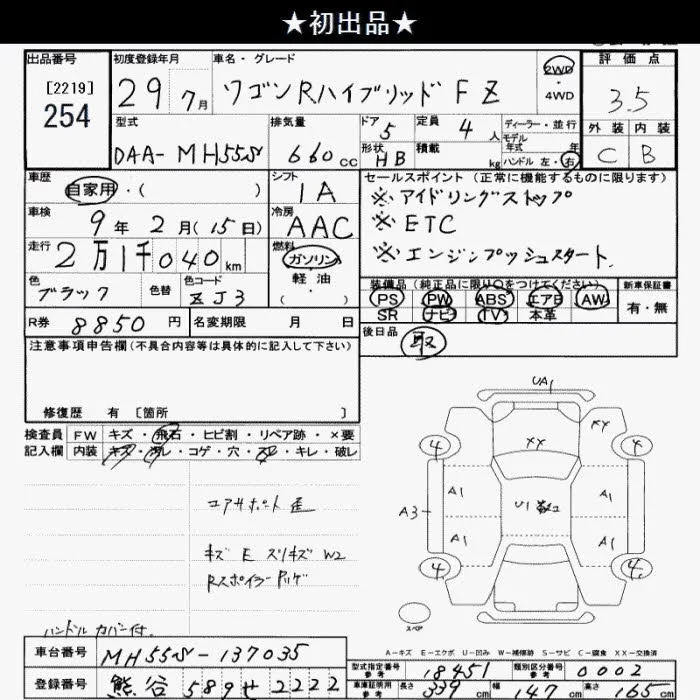 ★初出品★
出品番号 初度登録年月 車名・グレード 2WD 評価点
[2219] 29年 7月 ワゴンRハイブリッド FZ ・4WD 3.5
254
型式 排気量 ドア 5 定員 4人 ディーラー・並行 外装 内装
DAA-MH55S 660cc 形状 HB 積載 kg モデル年式 年 ハンドル 左・右 C B
車歴 シフト セールスポイント(正常に機能するものに限ります)
自家用・( ) IA ※アイドリングストップ
車検 9年 2月(15日) 冷房 AAC ※ETC
走行 2万1千040km 燃料 ガソリン ※エンジンプッシュスタート
軽油
・( )
色 色替 色コード 装備品(純正品に限り○をつけてください) 新車保証書
ブラック ZJ3 PS PW ABS エアB AW 有・無
SR ナビ TV 本革
R券 8850円 名変期限 月 日 後日品
取
注意事項申告欄(不具合内容等は具体的に記入して下さい)
修復歴 有 [箇所 ]
検査員 FW キズ・飛石・ヒビ割・リペア跡・×要
記入欄 内装 キズ・汚レ・コゲ・穴・スレ・キレ・破レ
UA1
XX XX
4 4
A1 A1
A3 U1
A1 A1
4 4
スペア
コアサポート
キズ E スリキズ W2
Rスポイラー
ハンドルカバー付
A-キズ E-エクボ U-凹み W-補修跡 S-サビ C-腐食 XX-交換済
車台番号 MH55S-137035
型式指定番号 参考 18451 類別区分番号 参考 0002
登録番号 熊谷 589せ2222
車庫証明用 参考 長さ 339cm 幅 147cm 高さ 165cm